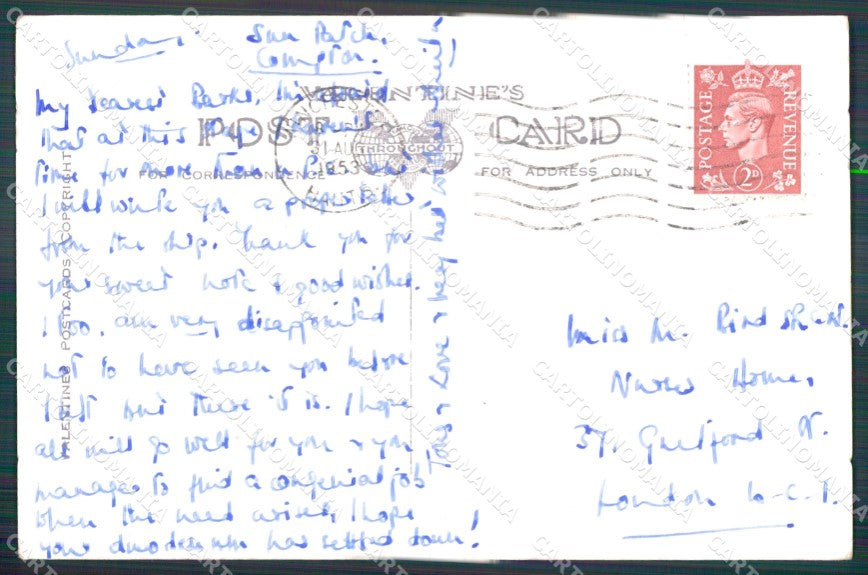 Sunday.
Sun Patch,
Compton.
My dearest
that at this
time for more
I will write you a proper letter
from the ship. Thank you for
your sweet note & good wishes.
I too, am very disappointed
not to have seen you before
I left but there it is. I hope
all will go well for you & you
manage to find a congenial job
when the need arises. I hope
your duodenum has settled down!
Love &
VALENTINE'S
POST CARD
THROUGHOUT
FOR CORRESPONDENCE
FOR ADDRESS ONLY
VALENTINES POSTCARDS COPYRIGHT
1953
POSTAGE
REVENUE
2D
Miss M.
Nurses Home,
37, Guilford St.
London W.C.1.
CARTOLINOMANIA